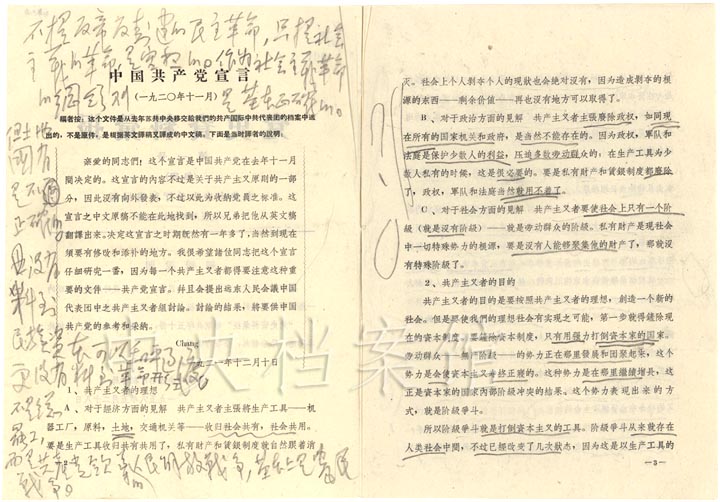 不提反帝反封建的民主革命，只提社会
主义的革命，是空想的。作为社会主义革命
的纲领则是基本正确的。
但土地国有是不正确的。
没有料到民族资本可以合作。
更没有料到
不是总罢工，而是共产党领导的人民解放战争，基本上是农民战争。
中国共产党宣言
（一九二○年十一月）
編者按：这个文件是从去年苏共中央移交給我們的共产国际中共代表团的档案中选
出的，不是原件，是根据英文譯稿又譯成的中文稿。下面是当时譯者的說明。
亲爱的同志們，这个宣言是中国共产党在去年十一月
間决定的。这宣言的內容不过是关于共产主义原則的一部
分，因此沒有向外发表，不过以此为收納党員之标准。这
宣言之中文原稿不能在此地找到，所以兄弟把他从英文稿
翻譯出来。决定这宣言之时期既然有一年多了，当然到現在
須要有修改和添补的地方。我很希望諸位同志把这个宣言
仔細研究一番，因为每一个共产主义者都得要注意这种重
要的文件——共产党宣言。并且会提出远东人民会議中国
代表团中之共产主义者組討論。討論的结果，將要供中国
共产党的参考和采納。
Chang
一九二一年十二月十日
1、共产主义者的理想
A、对于经济方面的見解　共产主义者主張將生产工具——机
器工厂，原料，土地，交通机关等——收归社会共有，社会共用。
要是生产工具收归共有共用了，私有财产和賃銀制度就自然跟着消
灭。社会上个人剥夺个人的現状也会絕对沒有，因为造成剥夺的根
源的东西——剩余价值——再也沒有地方可以取得了。
B、对于政治方面的見解　共产主义者主張廢除政权，如同現
在所有的国家机关和政府，是当然不能存在的。因为政权，軍队和
法庭是保护少数人的利益，压迫多数劳动群众的，在生产工具为少
数人私有的时候，这是很必要的。要是私有财产和賃銀制度都廢除
了，政权，軍队和法庭当然就用不着了。
C、对于社会方面的見解　共产主义者要使社会上只有一个阶
級（就是沒有阶級）——就是劳动群众的阶級。私有财产是現社会
中一切特殊势力的根源，要是沒有人能够聚集他的财产了，那就沒
有特殊阶級了。
2、共产主义者的目的
共产主义者的目的是要按照共产主义者的理想，創造一个新的
社会。但是要使我們的理想社会有实現之可能，第一步就得鏟除現
在的資本制度。要鏟除資本制度，只有用强力打倒資本家的国家。
劳动群众——無产阶級——的势力正在那里發展和团聚起来，这个
势力是会使資本主义寿終正寢的。这种势力是在那里繼續增長，这
正是資本家的国家內部阶級冲突的結果。这个势力表現出来的方
式，就是阶級爭斗。
所以阶級爭斗就是打倒資本主义的工具。阶級爭斗从来就存在
人类社会中間，不过已經改变了几次状态，因为这是以生产工具的
—3—
中央档案馆